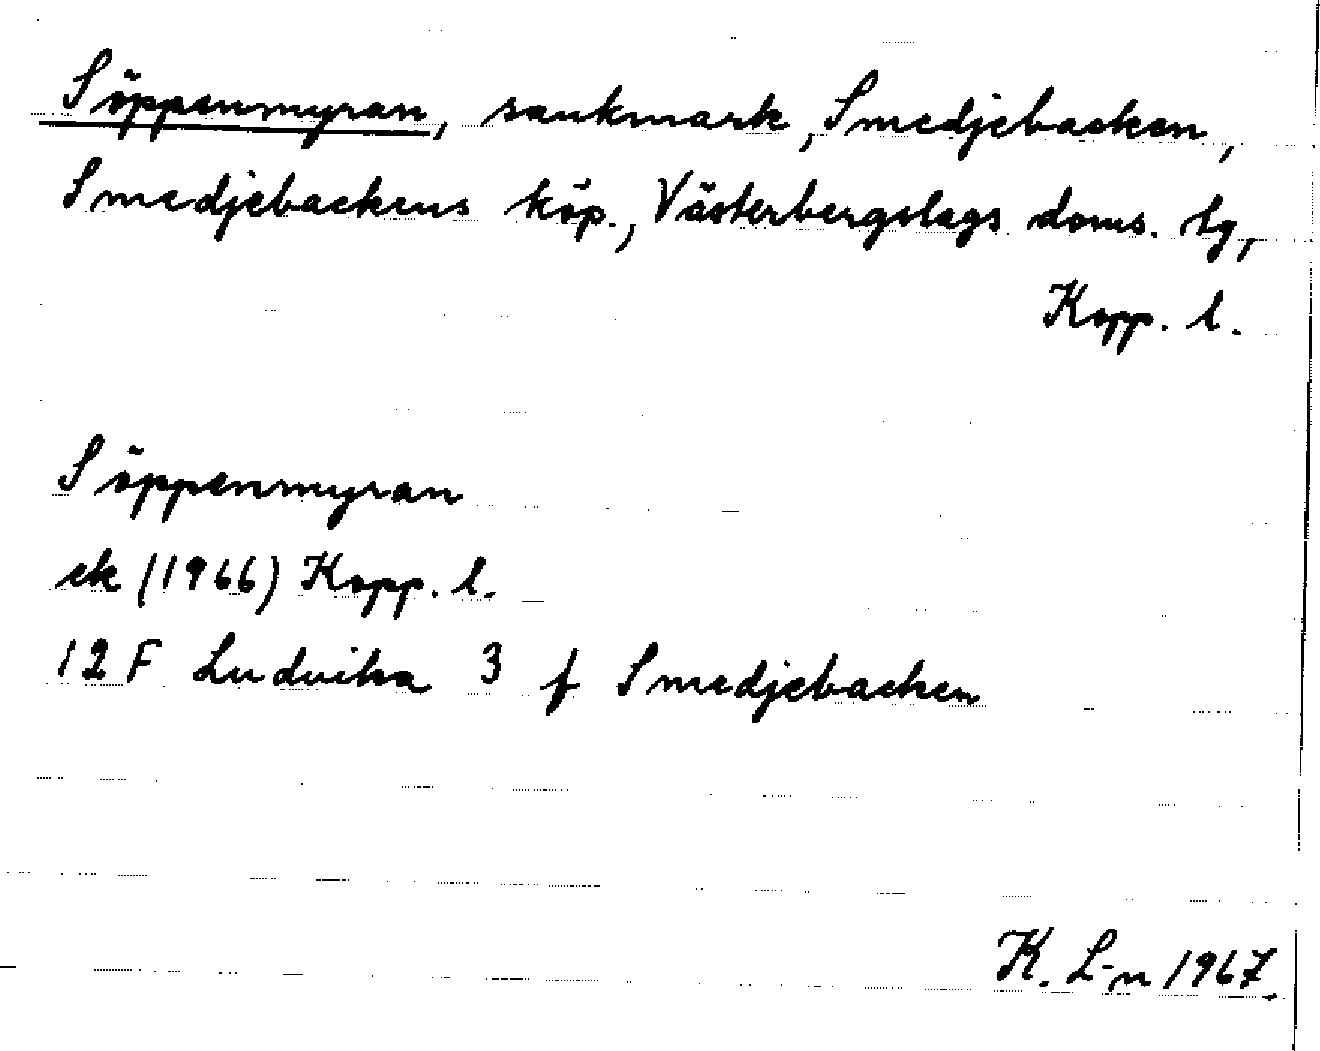 Söppenmyran, sankmark, Smedjebacken,
Smedjebackens köp., Västerbergslags doms. tg,
Kopp. l.
Söppenmyran
ek (1966) Kopp. l.
12 F Ludvika 3 f Smedjebacken
K. L-n 1967.